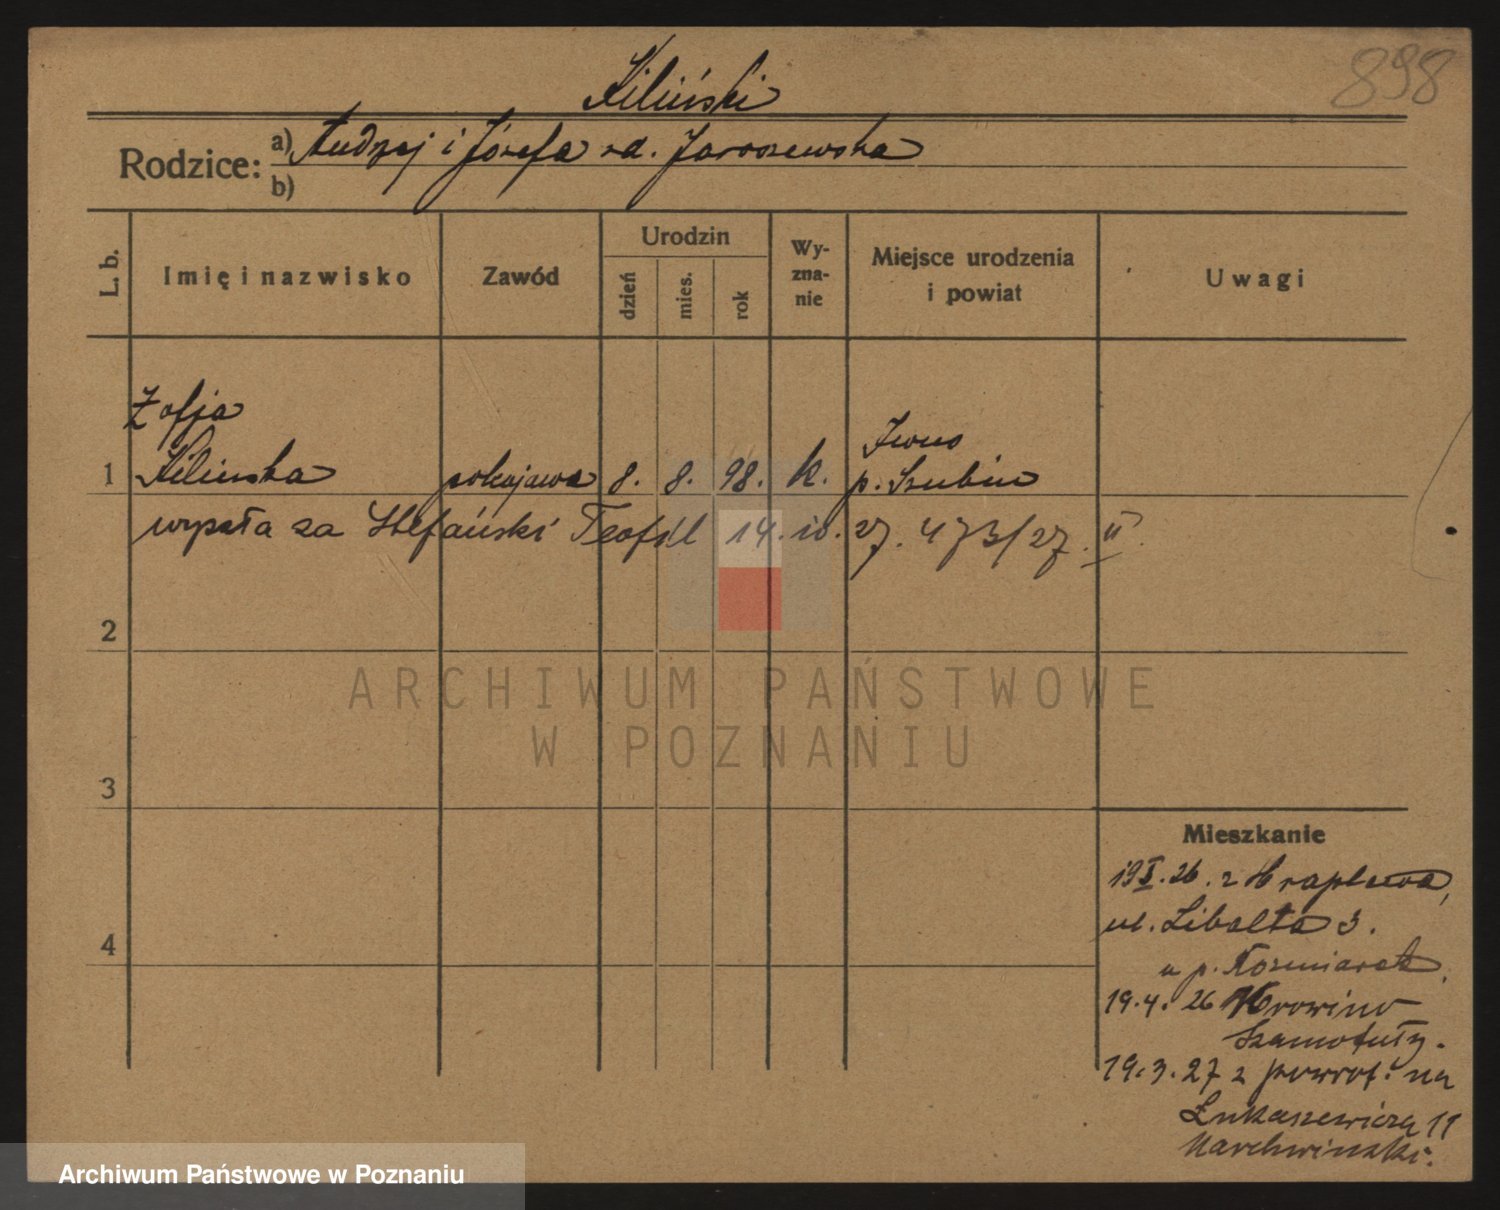 Kiliński
898
Rodzice: a) Andrzej i Józefa zd. Jaroszewska
b)
L. b.
Imię i nazwisko
Zawód
Urodzin
dzień
mies.
rok
Wy-
zna-
nie
Miejsce urodzenia
i powiat
Uwagi
Zofja
1 Kilinska pokojawa 8. 8. 98. k. Iwno
p. Szubin
wyszła za Stefański Teofil 14. 10. 27. 473/27. II
2
3
4
Mieszkanie
19 I. 26. z
ul. Libelta 3.
u p.
19.4. 26
Szamotuły.
19.3.27 z powrot. na
Łukaszewicza 11
Marchwinski.
ARCHIWUM PAŃSTWOWE
W POZNANIU
Archiwum Państwowe w Poznaniu